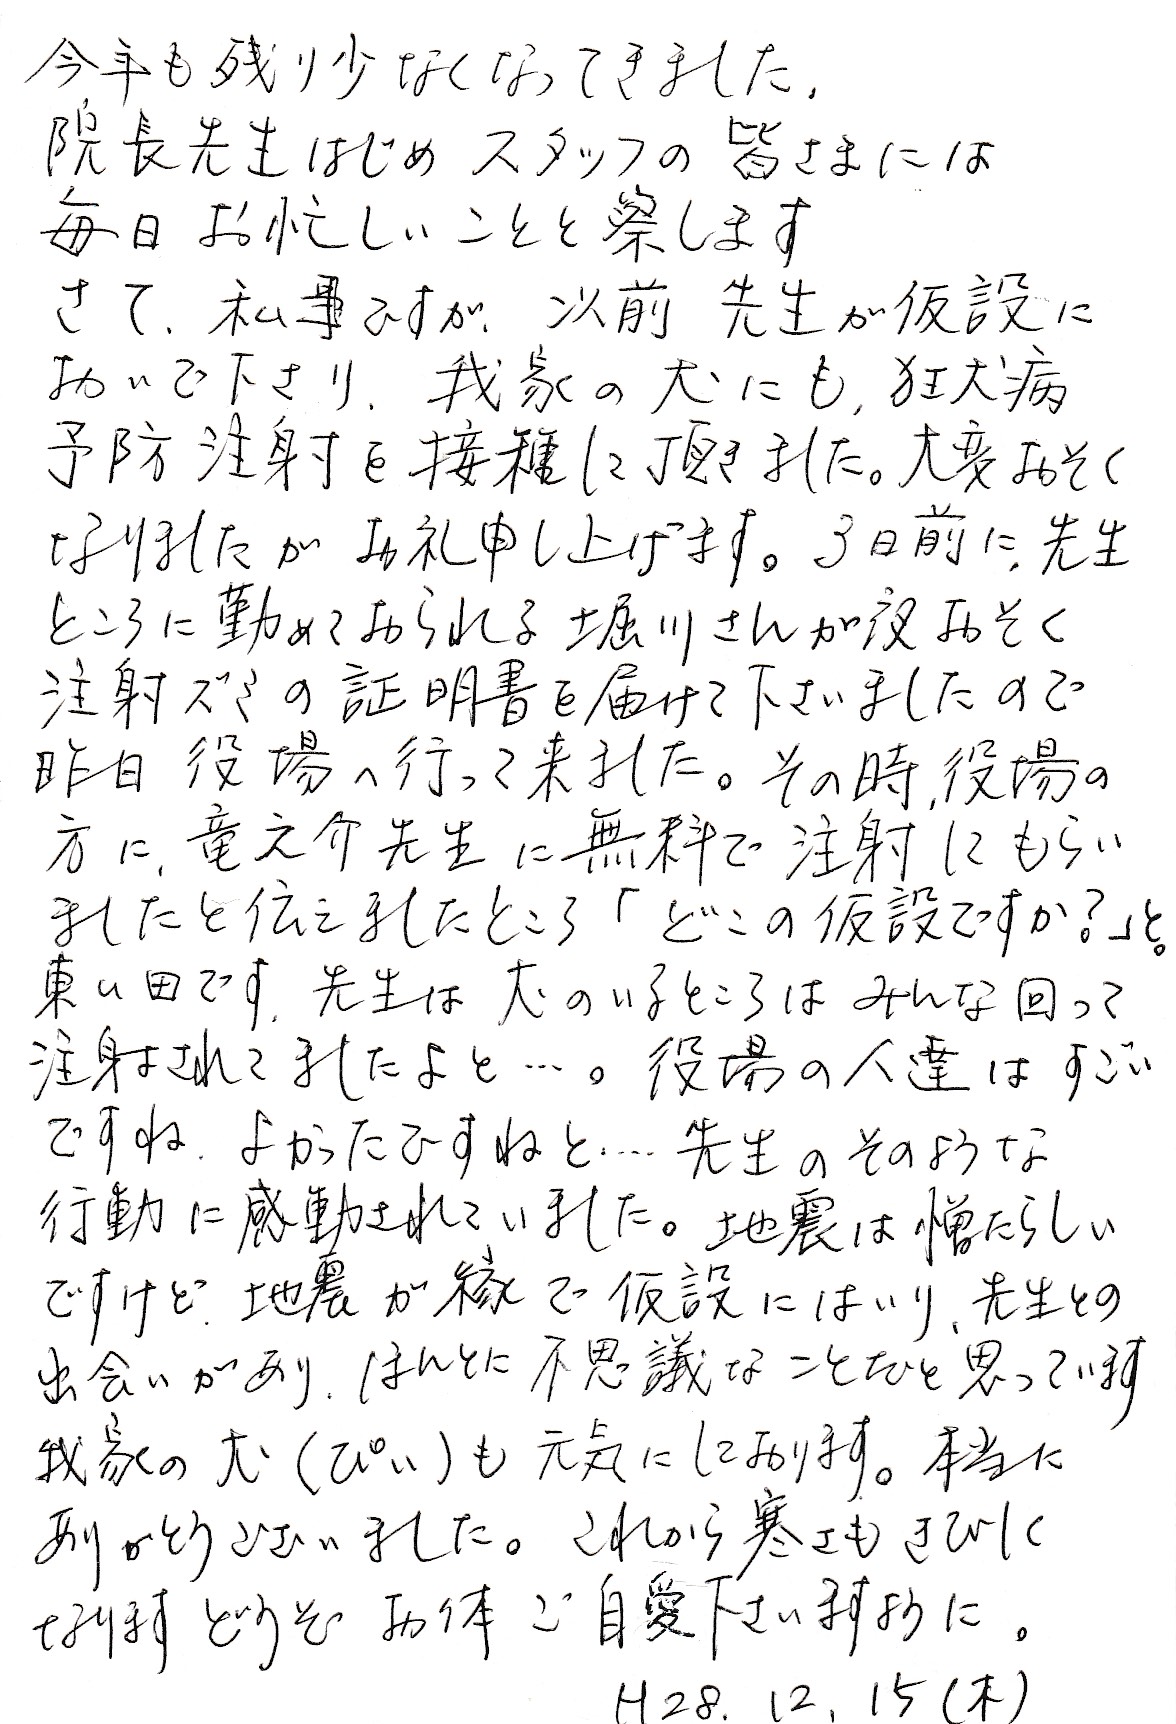 今年も残り少なくなってきました.
院長先生はじめ スタッフの 皆さまには
毎日 お忙しいことと察します
さて、私事ですが、以前 先生が仮設に
おいで下さり、我家の犬にも、狂犬病
予防注射を接種して頂きました。大変おそく
なりましたが お礼申し上げます。3日前に、先生
ところに勤めておられる堀川さんが夜おそく
注射ズミの証明書を届けて下さいましたので
昨日 役場へ行って来ました。その時、役場の
方に、竜之介先生に無料で注射してもらい
ましたと伝えましたところ「どこの仮設ですか?」と。
東い田です、先生は犬のいるところはみんな回って
注射されてましたよと…。役場の人達はすごい
ですね、よかったですねと…. 先生のそのような
行動に感動されていました。地震は憎たらしい
ですけど、地震が縁で仮設にはいり、先生との
出会いがあり、ほんとに不思議なことだと思っています
我家の犬(ぴい)も元気にしております。本当に
ありがとうございました。これから寒さもきびしく
なります どうぞ お体ご自愛下さいますように。
H28. 12. 15(木)